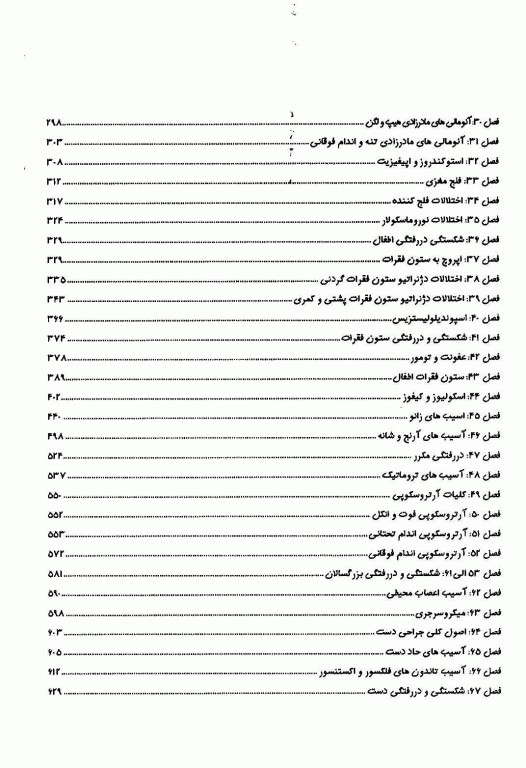 فصل ۳۰: آنومالی های مادرزادی هیپ و لگن ........ ۲۹۸
فصل ۳۱: آنومالی های مادرزادی تنه و اندام فوقانی ........ ۳۰۳
فصل ۳۲: استوکندروز و اپیفیزیت ........ ۳۰۸
فصل ۳۳: فلج مغزی ........ ۳۱۲
فصل ۳۴: اختلالات فلج کننده ........ ۳۱۷
فصل ۳۵: اختلالات نوروماسکولار ........ ۳۲۴
فصل ۳۶: شکستگی دررفتگی اطفال ........ ۳۲۹
فصل ۳۷: اپروچ به ستون فقرات ........ ۳۲۹
فصل ۳۸: اختلالات دژنراتیو ستون فقرات گردنی ........ ۳۳۵
فصل ۳۹: اختلالات دژنراتیو ستون فقرات پشتی و کمری ........ ۳۴۳
فصل ۴۰: اسپوندیلولیستزیس ........ ۳۶۶
فصل ۴۱: شکستگی و دررفتگی ستون فقرات ........ ۳۷۴
فصل ۴۲: عفونت و تومور ........ ۳۷۸
فصل ۴۳: ستون فقرات اطفال ........ ۳۸۹
فصل ۴۴: اسکولیوز و کیفوز ........ ۴۰۲
فصل ۴۵: اسیب های زانو ........ ۴۴۰
فصل ۴۶: آسیب های آرنج و شانه ........ ۴۹۸
فصل ۴۷: دررفتگی مکرر ........ ۵۲۴
فصل ۴۸: آسیب های تروماتیک ........ ۵۳۷
فصل ۴۹: کلیات آرتروسکوپی ........ ۵۵۰
فصل ۵۰: آرتروسکوپی فوت و انکل ........ ۵۵۲
فصل ۵۱: آرتروسکوپی اندام تحتانی ........ ۵۵۳
فصل ۵۲: آرتروسکوپی اندام فوقانی ........ ۵۷۲
فصل ۵۳ الی ۶۱: شکستگی و دررفتگی بزرگسالان ........ ۵۸۱
فصل ۶۲: آسیب اعصاب محیطی ........ ۵۹۰
فصل ۶۳: میکروسرجری ........ ۵۹۸
فصل ۶۴: اصول کلی جراحی دست ........ ۶۰۳
فصل ۶۵: آسیب های حاد دست ........ ۶۰۵
فصل ۶۶: آسیب تاندون های فلکسور و اکستنسور ........ ۶۱۲
فصل ۶۷: شکستگی و دررفتگی دست ........ ۶۲۹